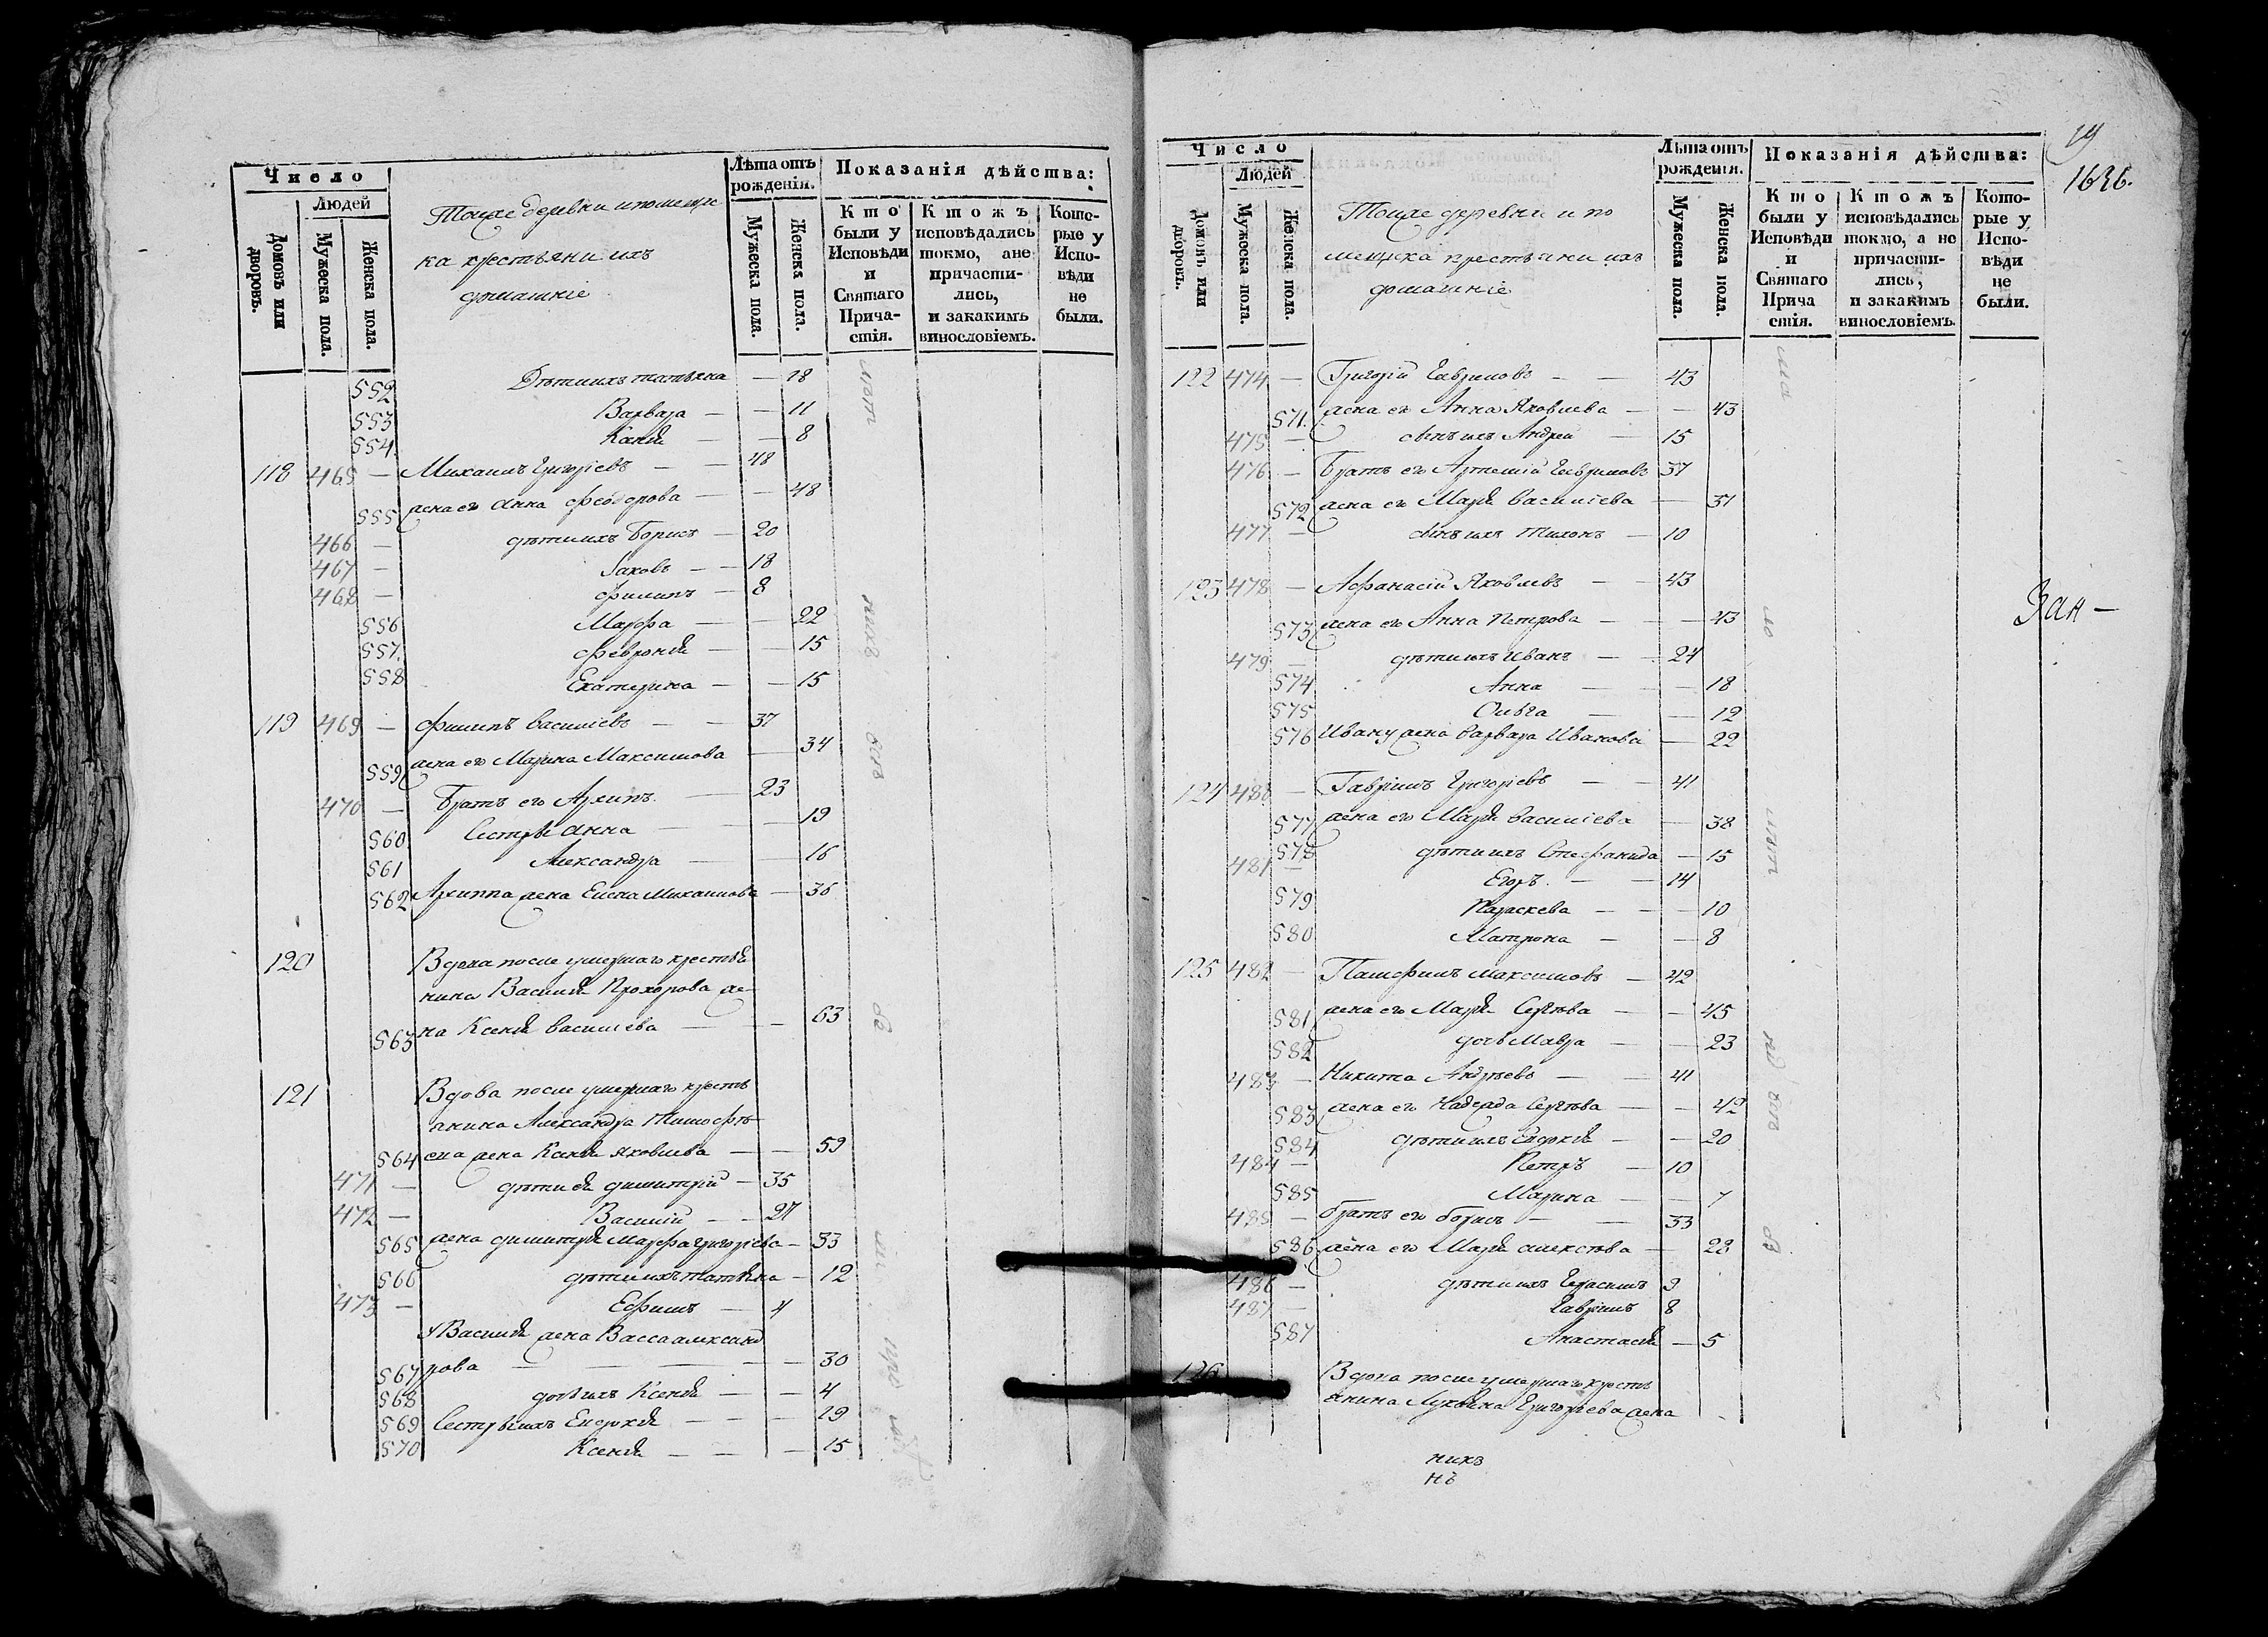 Число
Людей
Домовъ или дворовъ.
Мужеска пола.
Женска пола.
Тояже деревни и помещи
ка крестьяни ихъ
домашніе
Лѣта отъ рожденія.
Мужеска пола.
Женскъ пола.
Показанія дѣйства:
Кто были у Исповѣди и Святаго Прича-стія.
Ктожъ исповѣдались токмо, ане причасти-лись, и закакимъ винословіемъ.
Кото-рые у Испо-вѣди не были.
552 Дѣти ихъ татьяна — 18
553 Варвара — — 11
554 — 8
118 465 — Михаилъ Григоріевъ — — 48
555 жена его Анна Феодорова — — 48
466 — дѣти ихъ Борисъ — 20
467 — Іаковъ — — 18
468 — Филипъ — 8
556 Марфа — — 22
557 Февронія — — 15
558 Екатерина — — 15
119 469 — Филипъ Василіевъ — — 37
559 жена его Марина Максимова — 34
470 — Братъ его Архипъ — 23
560 Сестры Анна — — 19
561 Александра — — 16
562 Архиппа жена Елена Михаилова — 36
120 Вдова после умершаго крестья
нина Василія Прохорова же
563 на Ксенія Василіева — — 63
121 Вдова после умершаго кресть
янина Александра Тимофѣ
564 ева жена Ксенія Яковлева — — 59
471 — дѣти ея Димитрій — 35
472 — Василій — — 27
565 жена Димитрія Марфа Григоріева — 33
566 дѣти ихъ татьяна — 12
473 — Ефимъ — 4
Василія жена Васса александ
567 рова — — — — 30
568 дочь ихъ Ксенія — — 4
569 Сестры ихъ Евдокія — — — 19
570 Ксенія — — — 15
19
1636.
Число
Людей
Домовъ или дворовъ.
Мужеска пола.
Женска пола.
Тояже деревни и по
мещика крестьяни ихъ
домашніе
Лѣта отъ рожденія.
Мужеска пола.
Женска пола.
Показанія дѣйства:
Кто были у Исповѣди и Святаго Прича стія.
Ктожъ исповѣдались токмо, а не причасти-лись, и закакимъ винословіемъ.
Кото-рые у Испо-вѣди не были.
122 474 — Григорій Гавриловъ — — 43
571 жена его Анна Яковлева — — 43
475 — сынъ ихъ Андрей — 15
476 — Братъ его Артемій Гавриловъ 37
572 жена его Марія Василіева — 31
477 — сынъ ихъ Тихонъ — 10
123 478 — Афанасій Яковлевъ — — 43
573 жена его Анна Петрова — — — 43
479 — дѣти ихъ Иванъ — — 24
574 Анна — — — 18
575 Ольга — — 12
576 Ивану жена Варвара Иванова — 22
Зан —
124 480 — Гавріилъ Григоріевъ — — 41
577 жена его Марія Василіева — 38
578 дѣти ихъ Стефанида — 15
481 — Егоръ — — 14
579 Параскева — — — 10
580 Матрона — — 8
125 482 — Памфилъ Максимовъ — 42
581 жена его Марія Сергѣева — — 45
582 дочь Мавра — — 23
483 — Никита Андрѣевъ — — 41
583 жена его Надежда Сергѣева — — 42
584 дѣти ихъ Евдокія — — 20
484 — Петръ — 10
585 Марина — — 7
485 — братъ его Борисъ — — 33
586 жена его Марія алексѣева — 28
486 — дѣти ихъ Герасимъ 9
487 — Гавріилъ 8
587 Анастасія — 5
126 Вдова после умершаго кресть
янина Лукьяна Григорьева жена
никъ
нъ